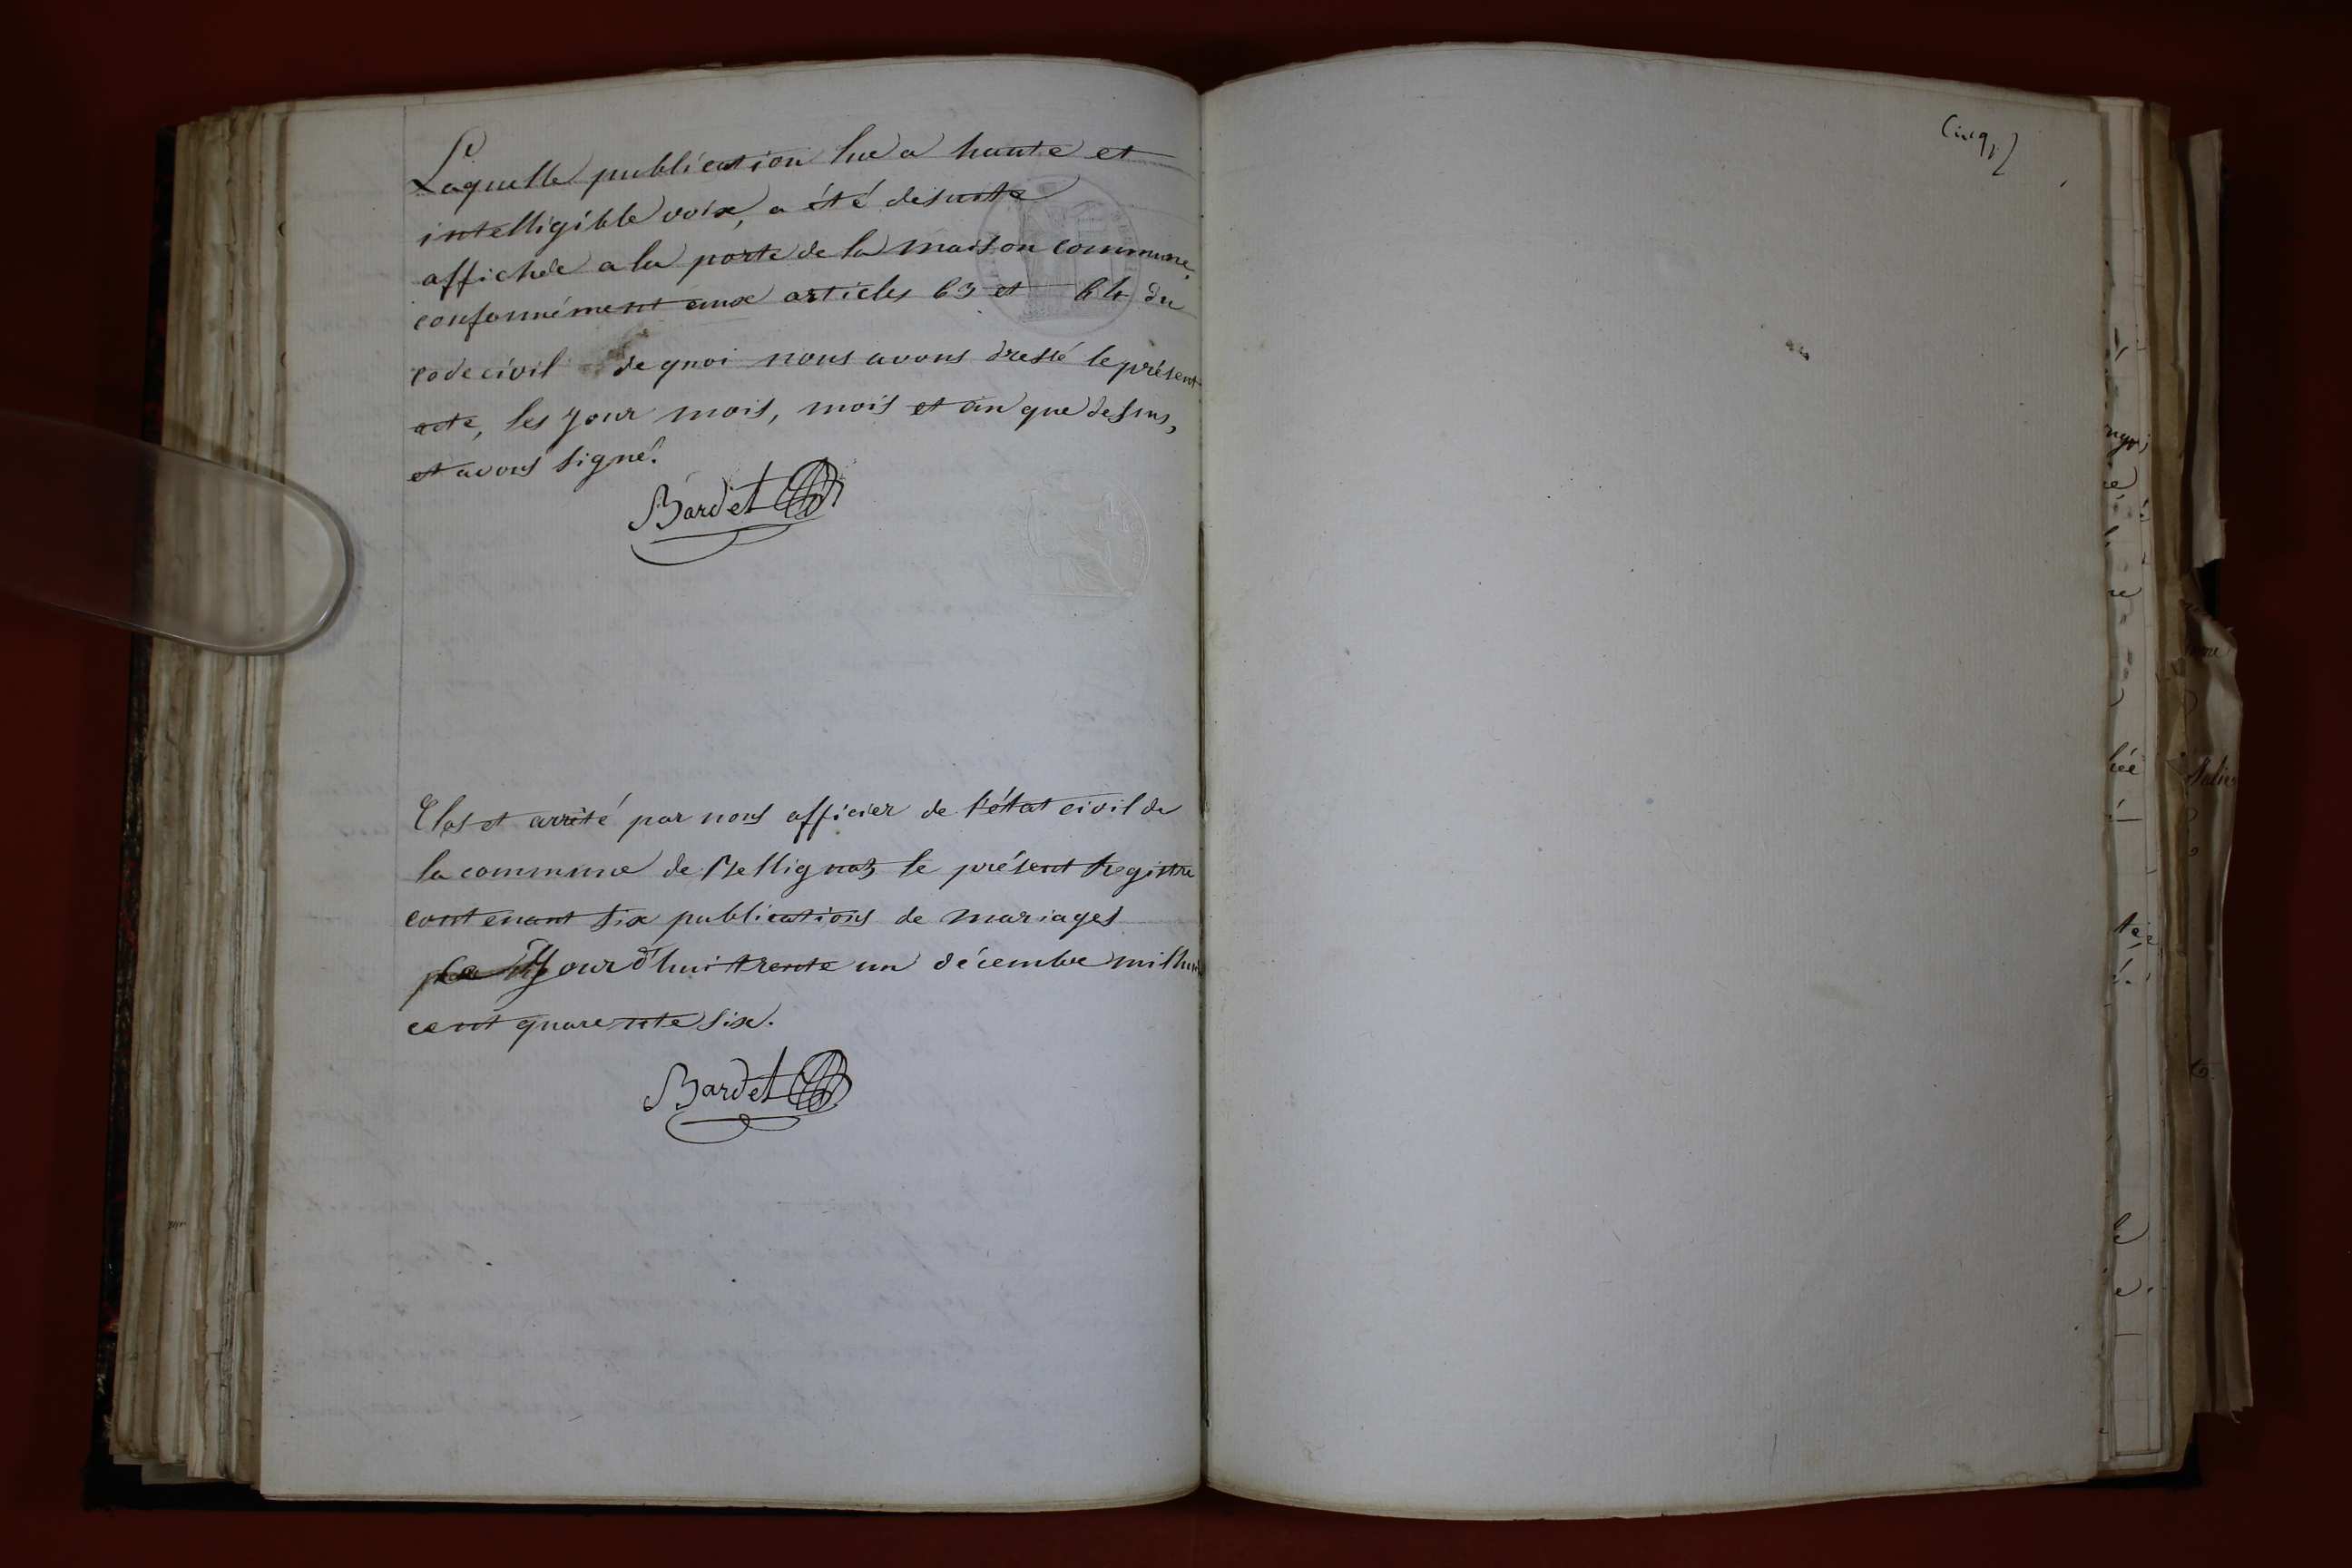 Laquelle publication lue a haute et
intelligible voix, a été desuite
affichée a la porte de la maison commune,
conformément aux articles 63 et 64 du
code civil de quoi nous avons dressé le présent
acte, les jour mois, mois et an que dessus,
et avons signé.
Bardet
Clos et arrêté par nous officier de l'état civil de
la commune de Bellignat le présent registre
contenant six publications de mariages
jourd'hui trente un décembre mil huit
cent quarente six.
Bardet
Cinq